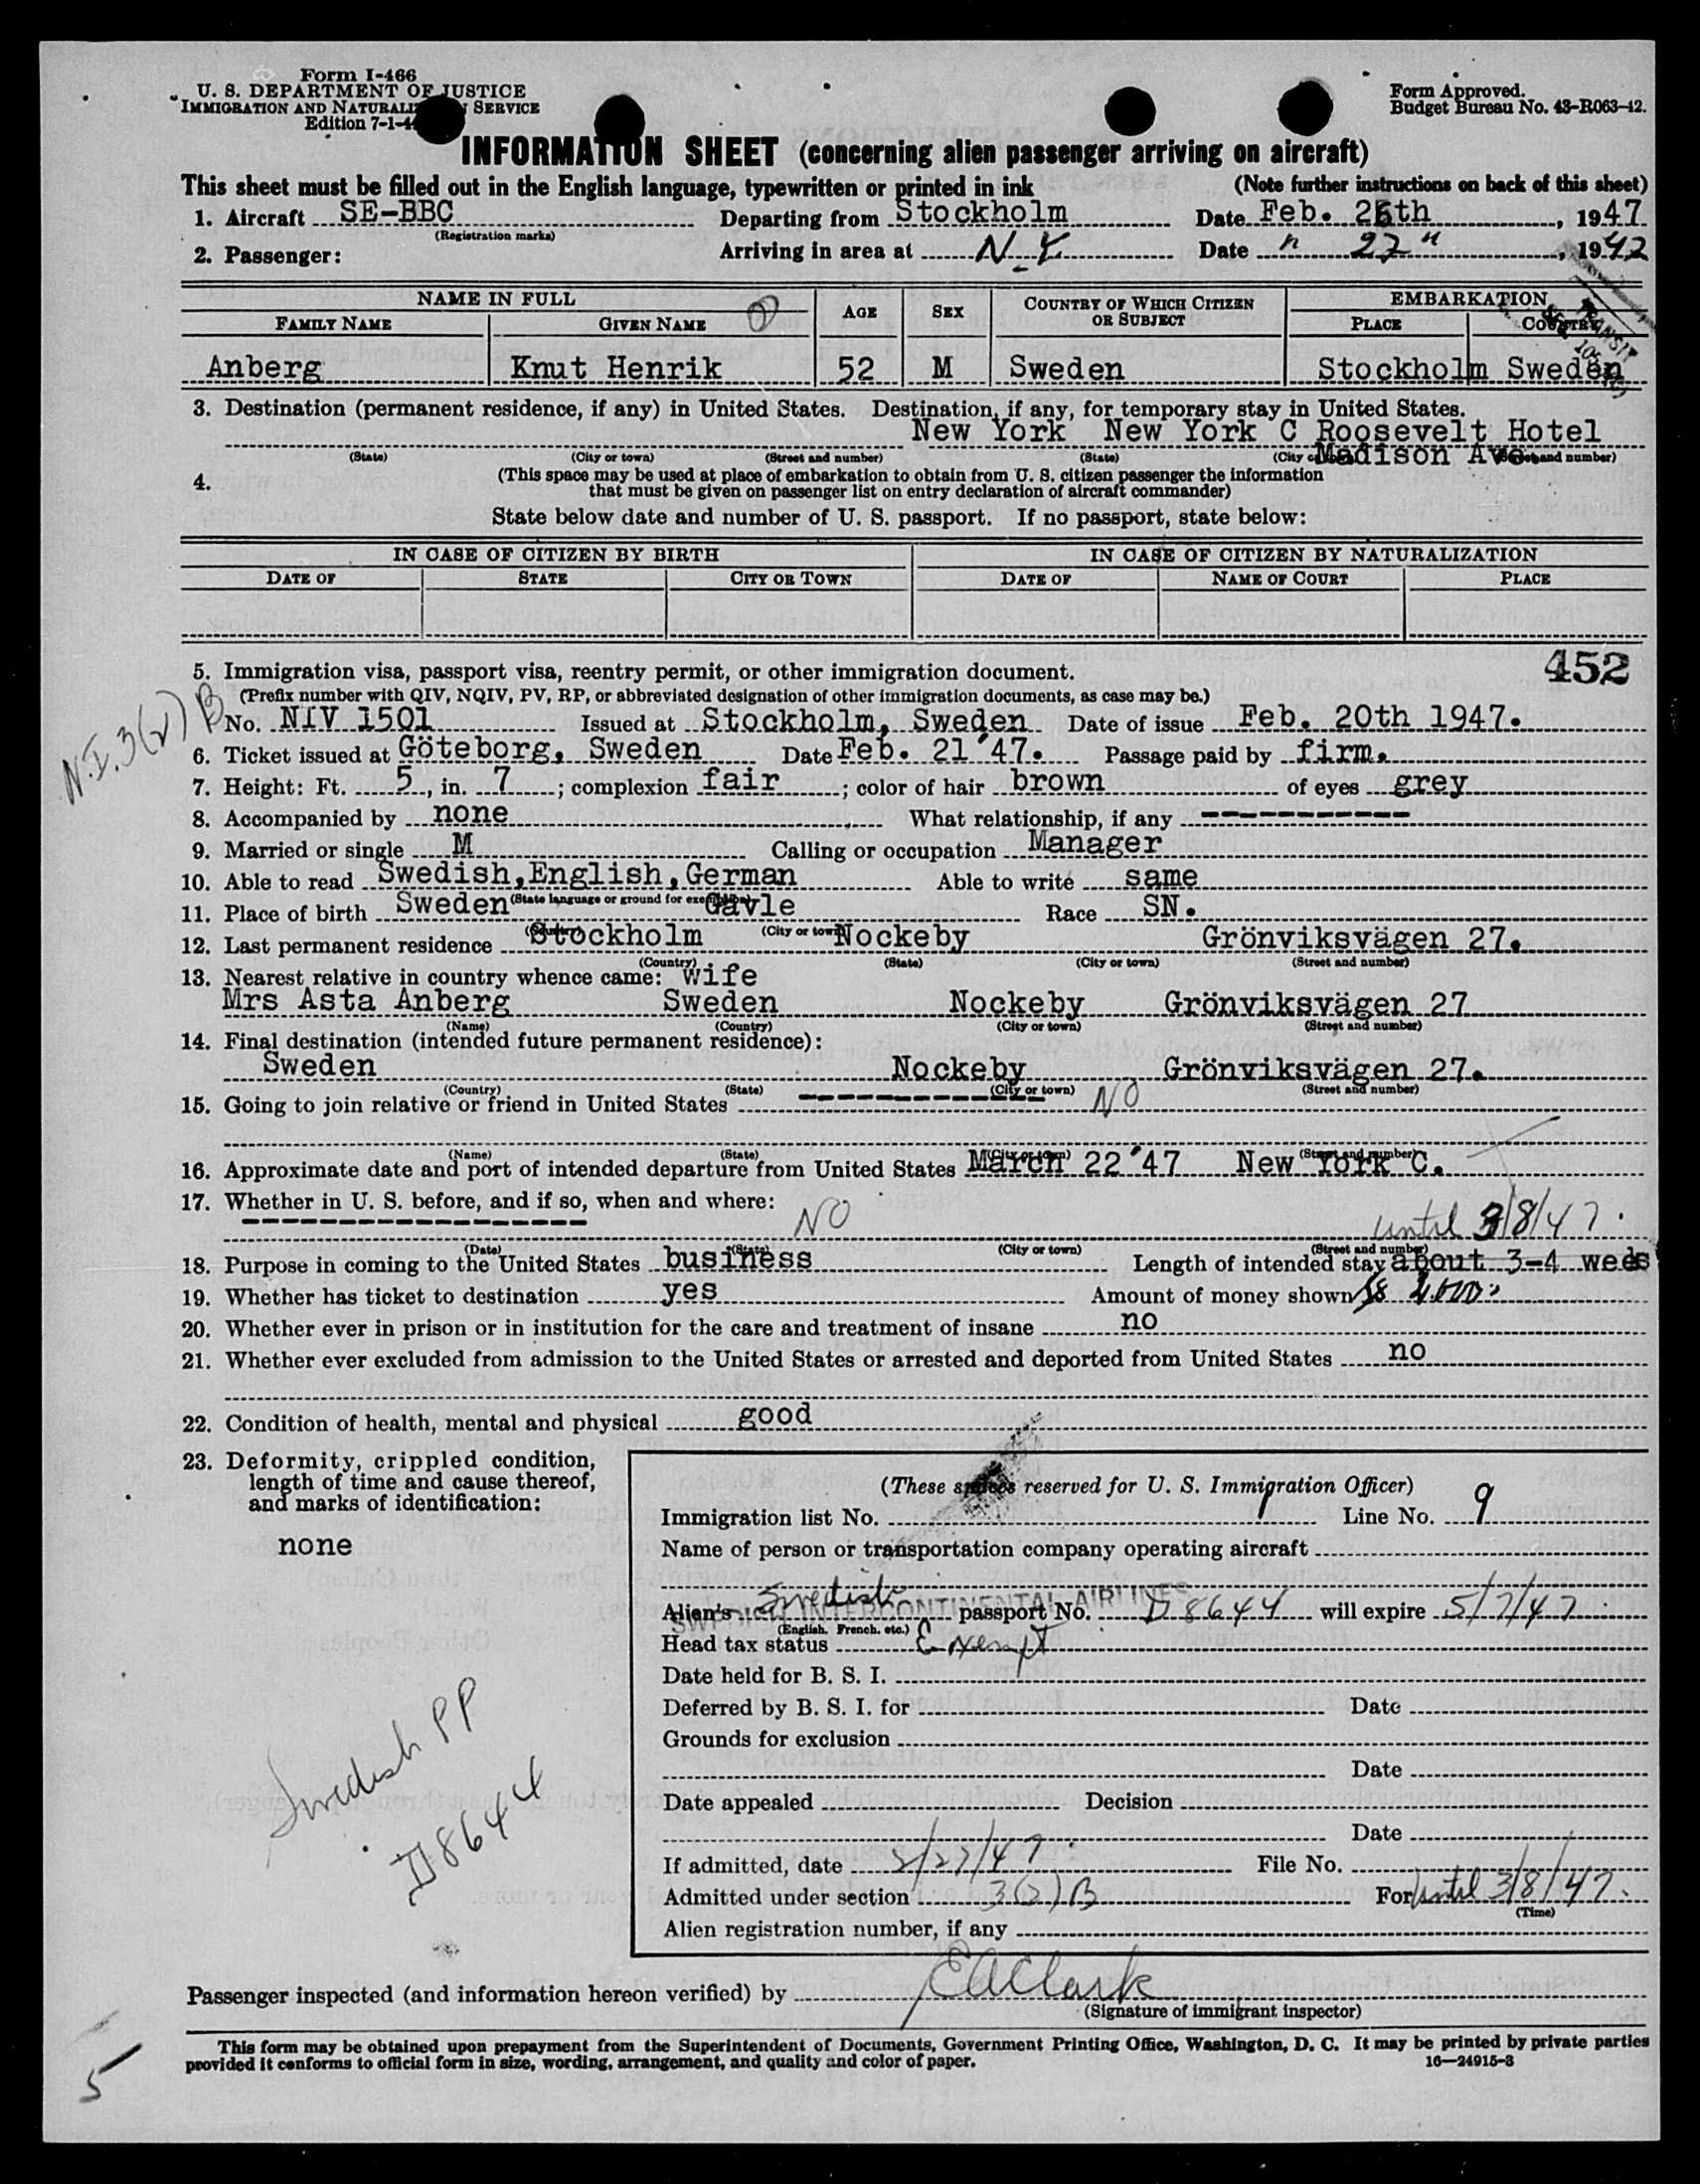 Form I-466
U. S. DEPARTMENT OF JUSTICE
IMMIGRATION AND NATURALIZ SERVICE
Edition 7-1-4
Form Approved.
Budget Bureau No. 43-R063-42.
INFORMATION SHEET (concerning alien passenger arriving on aircraft)
This sheet must be filled out in the English language, typewritten or printed in ink (Note further instructions on back of this sheet)
1. Aircraft SE-BBC Departing from Stockholm Date Feb. 26th, 1947
(Registration marks)
2. Passenger: Arriving in area at N.Y. Date " 27 ", 1947
NAME IN FULL AGE SEX COUNTRY OF WHICH CITIZEN OR SUBJECT EMBARKATION
FAMILY NAME GIVEN NAME PLACE COUNTRY
TRANSIT
Anberg Knut Henrik 52 M Sweden Stockholm Sweden
3. Destination (permanent residence, if any) in United States. Destination, if any, for temporary stay in United States.
New York New York C Roosevelt Hotel
(State) (City or town) (Street and number) (State) (City or Madison Ave. and number)
4. (This space may be used at place of embarkation to obtain from U. S. citizen passenger the information
that must be given on passenger list on entry declaration of aircraft commander)
State below date and number of U. S. passport. If no passport, state below:
IN CASE OF CITIZEN BY BIRTH IN CASE OF CITIZEN BY NATURALIZATION
DATE OF STATE CITY OR TOWN DATE OF NAME OF COURT PLACE
452
5. Immigration visa, passport visa, reentry permit, or other immigration document.
(Prefix number with QIV, NQIV, PV, RP, or abbreviated designation of other immigration documents, as case may be.)
N.I. 3(2) B
No. NIV 1501 Issued at Stockholm, Sweden Date of issue Feb. 20th 1947.
6. Ticket issued at Göteborg, Sweden Date Feb. 21 '47. Passage paid by firm.
7. Height: Ft. 5, in. 7; complexion fair; color of hair brown of eyes grey
8. Accompanied by none What relationship, if any ------------
9. Married or single M Calling or occupation Manager
10. Able to read Swedish,English,German Able to write same
(State language or ground for exemption)
11. Place of birth Sweden Gävle Race SN.
(Country) (City or town)
12. Last permanent residence Stockholm Nockeby Grönviksvägen 27.
(Country) (State) (City or town) (Street and number)
13. Nearest relative in country whence came: wife
Mrs Asta Anberg Sweden Nockeby Grönviksvägen 27
(Name) (Country) (City or town) (Street and number)
14. Final destination (intended future permanent residence):
Sweden Nockeby Grönviksvägen 27.
(Country) (State) (City or town) (Street and number)
15. Going to join relative or friend in United States -------------- NO
(Name) (State) (City or town) (Street and number)
16. Approximate date and port of intended departure from United States March 22 '47 New York C.
17. Whether in U. S. before, and if so, when and where: NO
until 3/8/47.
(Date) (State) (City or town) (Street and number)
18. Purpose in coming to the United States business Length of intended stay about 3-4 weeks
19. Whether has ticket to destination yes Amount of money shown
20. Whether ever in prison or in institution for the care and treatment of insane no
21. Whether ever excluded from admission to the United States or arrested and deported from United States no
22. Condition of health, mental and physical good
23. Deformity, crippled condition,
length of time and cause thereof,
and marks of identification:
none
(These spaces reserved for U. S. Immigration Officer)
Immigration list No. Line No. 9
Name of person or transportation company operating aircraft
SWEDISH INTERCONTINENTAL AIRLINES
Alien's Swedish passport No. D 8644 will expire 5/7/47
(English, French, etc.)
Head tax status Exempt
Date held for B. S. I.
Deferred by B. S. I. for Date
Grounds for exclusion
Date
Date appealed Decision
Date
If admitted, date 2/27/47 File No.
Admitted under section 3(2) B For until 3/8/47.
(Time)
Alien registration number, if any
Swedish PP
D8644
Passenger inspected (and information hereon verified) by EAClark
(Signature of immigrant inspector)
This form may be obtained upon prepayment from the Superintendent of Documents, Government Printing Office, Washington, D. C. It may be printed by private parties
provided it conforms to official form in size, wording, arrangement, and quality and color of paper. 16—24915-3
5